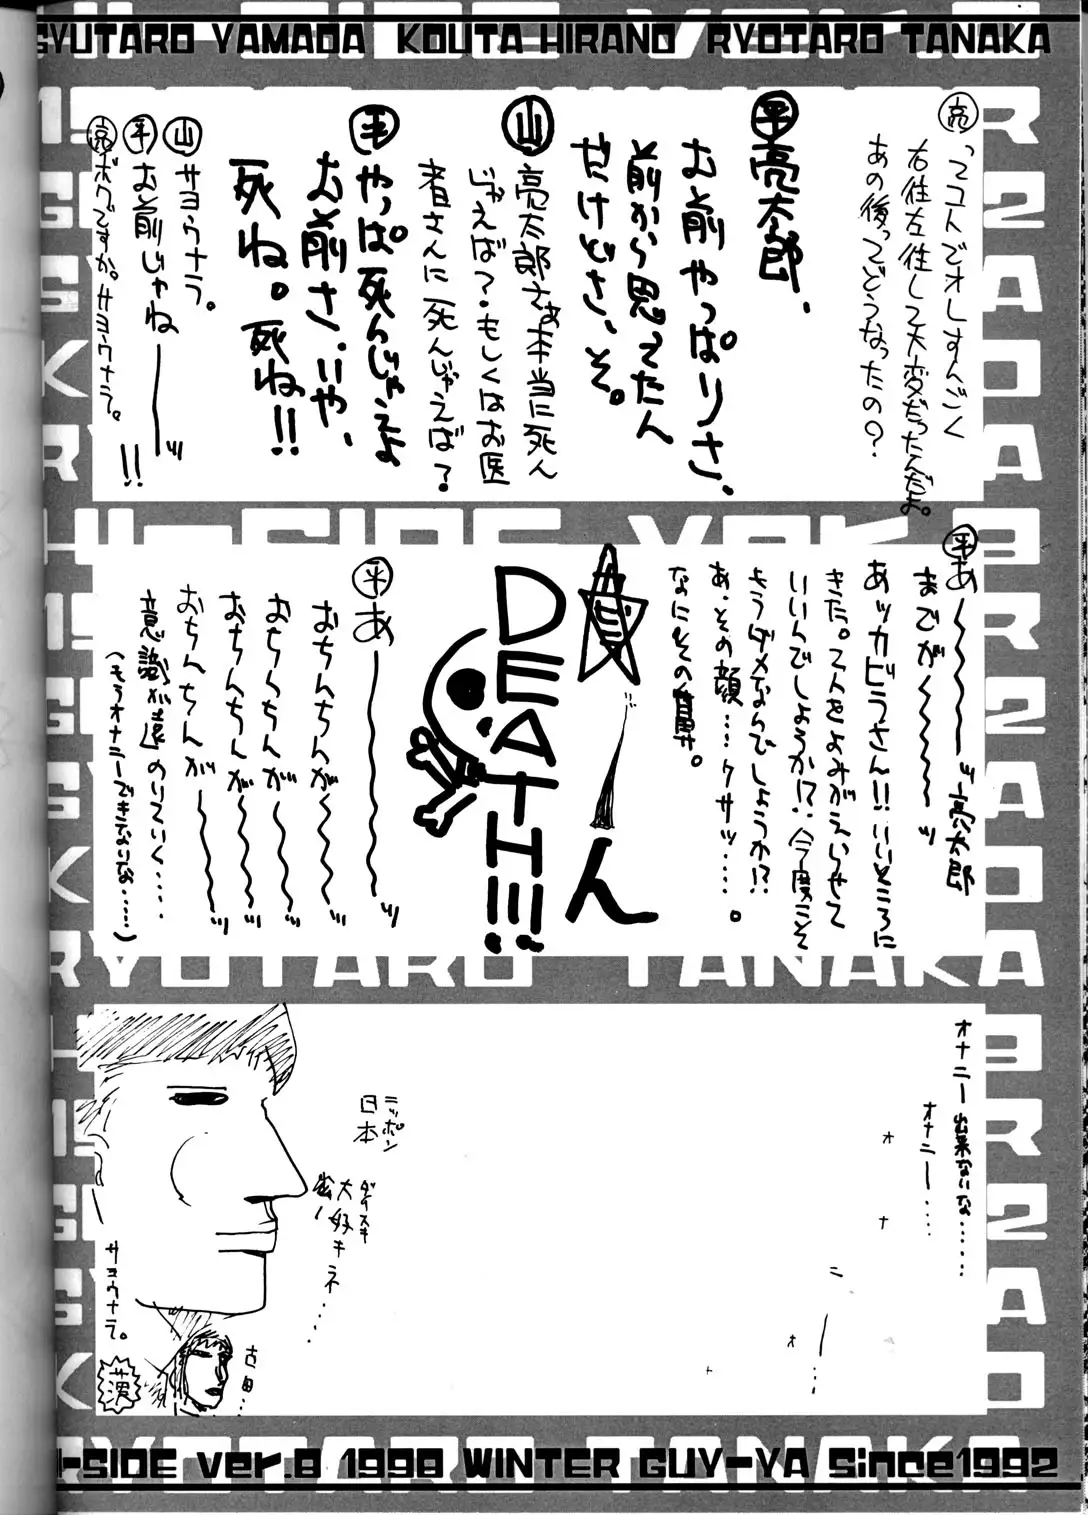 GYUTARO YAMADA KOUTA HIRANO RYOTARO TANAKA
亮 ってコトでオレすんごく
右往左往して大変だったんだよ。
あの後ってどうなったの?
平 亮太郎、
お前やっぱりさ、
前から思ってたん
だけどさ、そ。
山 亮太郎さぁ本当に死ん
じゃえば?もしくはお医
者さんに死んじゃえば?
平 やっぱ死んじゃえよ
お前さ、いや、
死ね。死ね!!
山 サヨウナラ。
平 お前じゃね──ッ!!
亮 ボクですか。サヨウナラ。
HI-SIDE ver.8
平 あ〜〜〜〜ッ亮太郎
までが〜〜〜ッ
あッカビラさん!!いいところに
きた。て人をよみがえらせて
いいんでしょうか!?今度こそ
もうダメなんでしょうか!?
あ、その顔……クサッ……。
なにその鼻。
ん
DEATH!!!
平 あ〜〜〜〜ッ
おちんちんが〜〜〜ッ
おちんちんが〜〜〜ッ
おちんちんが〜〜〜ッ
おちんちんが〜〜〜ッ
意識が遠のいていく……
(もうオナニーできないな……)
RYOTARO TANAKA
オナニー出来ないな……
オナニー……
オ
ナ
ニ
ー…
ニッポン
日本
ダイスキ
大好キネ…
サヨウナラ。
古田…
HI-SIDE ver.8 1998 WINTER GUY-YA Since1992